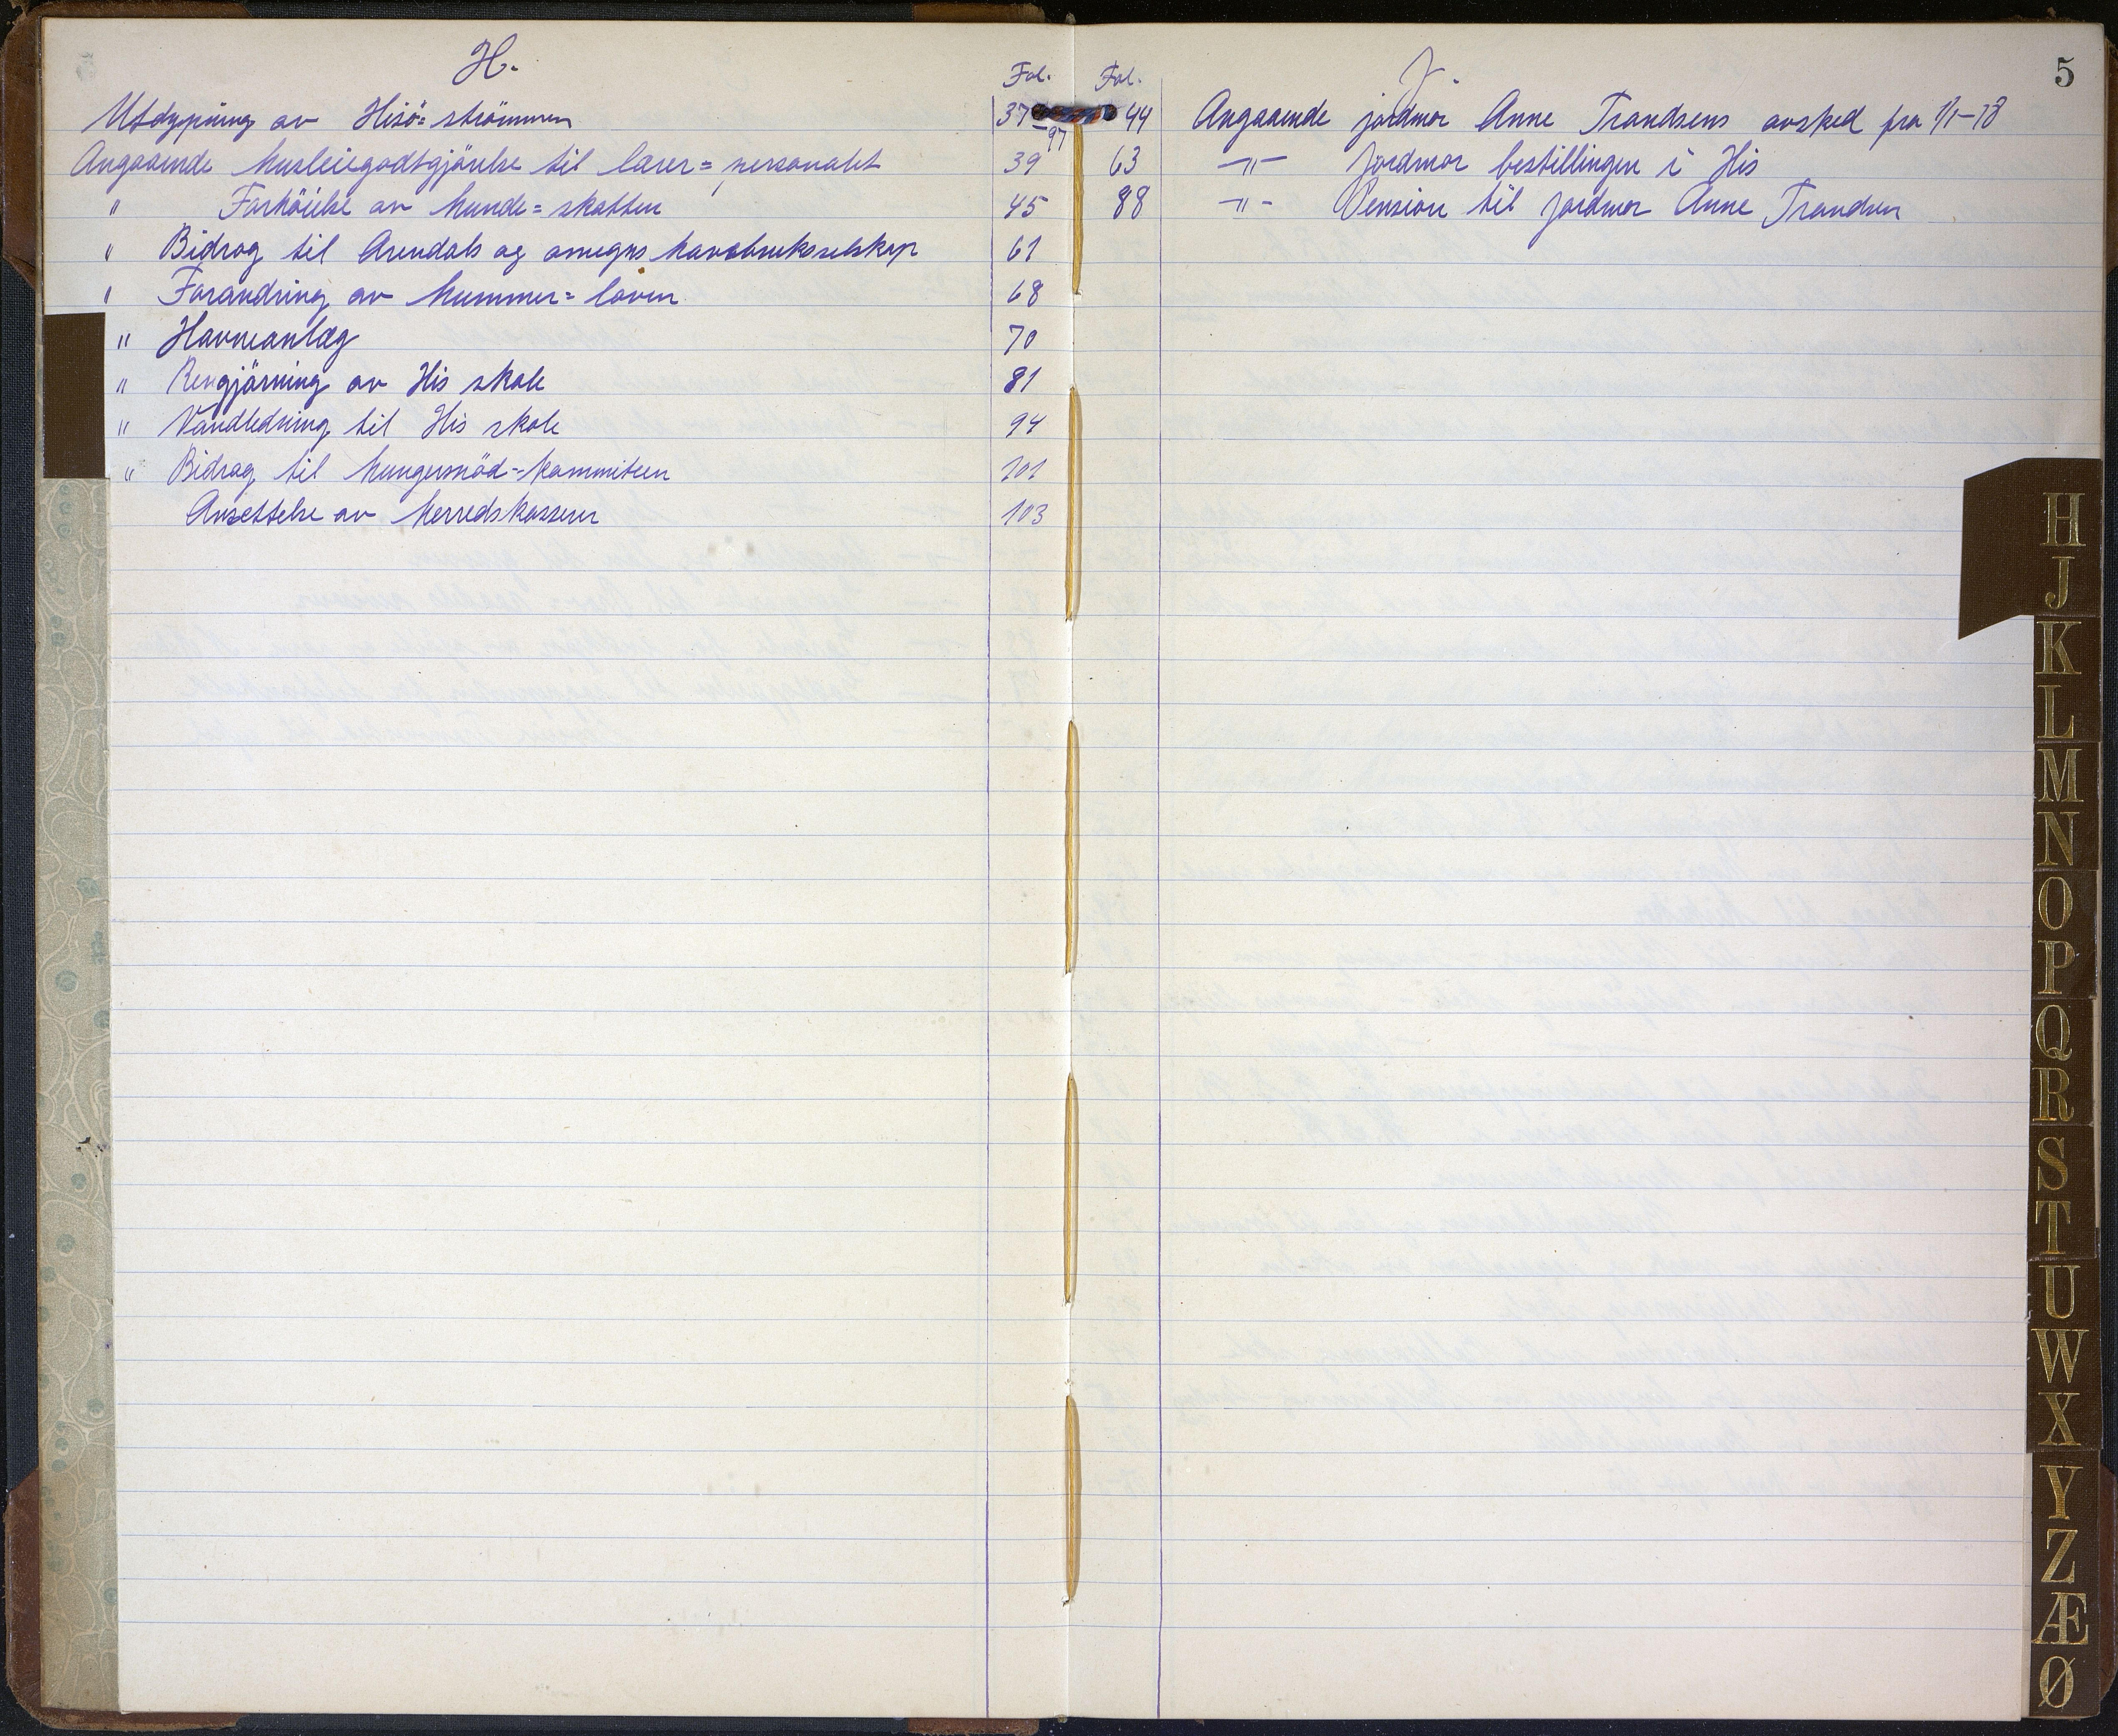 H.
Fol.
Utdypning av Hisö=strömmen 37-97
Angaaende husleiegodtgjörelse til lærer=personalet 39
" Forhöielse av hunde=skatten 45
" Bidrag til Arendals og omegns havebruksselskap 61
" Forandring av hummer=loven 68
" Havneanlæg 70
" Rengjörning av His skole 81
" Vandledning til His skole 94
" Bidrag til hungersnöd=kommiteen 101
Ansettelse av herredskasserer 103
J.
5
Fol.
44 Angaaende jordmor Anne Trandsens avsked fra 1/1-18
63 -"- Jordmor bestillingen i His
88 -"- Pension til jordmor Anne Trandsen
H
J
K
L
M
N
O
P
Q
R
S
T
U
W
X
Y
Z
Æ
Ø